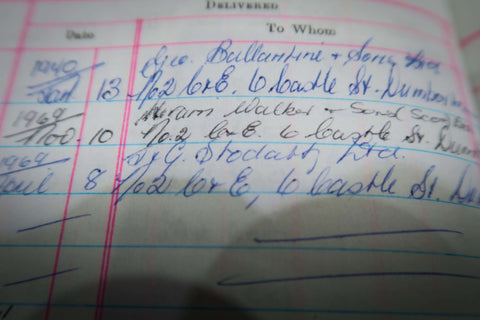 DELIVERED
Date To Whom
1940 Geo. Ballantine & Sons Ltd
Jan 13 No2 C+E, 6 Castle St. Dumbarton
1969 Hiram Walker & Sons Scot
Nov. 10 No.2 C+E. 6 Castle St. Dum
1969 J.G. Stodart, Ltd.
April 8 No2 C+E, 6 Castle St. Dum